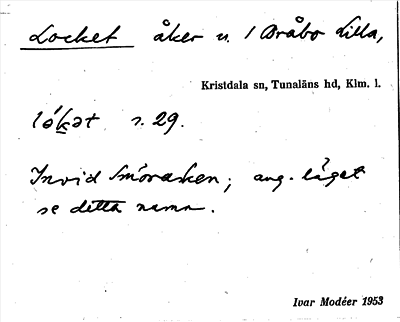 Locket åker u. 1 Bråbo Lilla,
Kristdala sn, Tunaläns hd, Klm. l.
lókət s. 29.
Invid Smörasken; ang. läget
se detta namn.
Ivar Modéer 1953